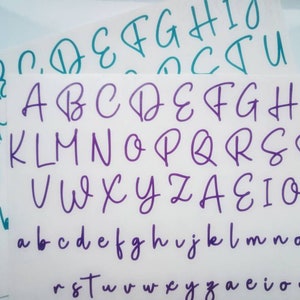 C D E F G H I J
P Q R S T U
A B C D E F G H
K L M N O P Q R S
U W X Y Z A E I O
a b c d e f g h i j k l m n o
r s t u v w x y z a e i o